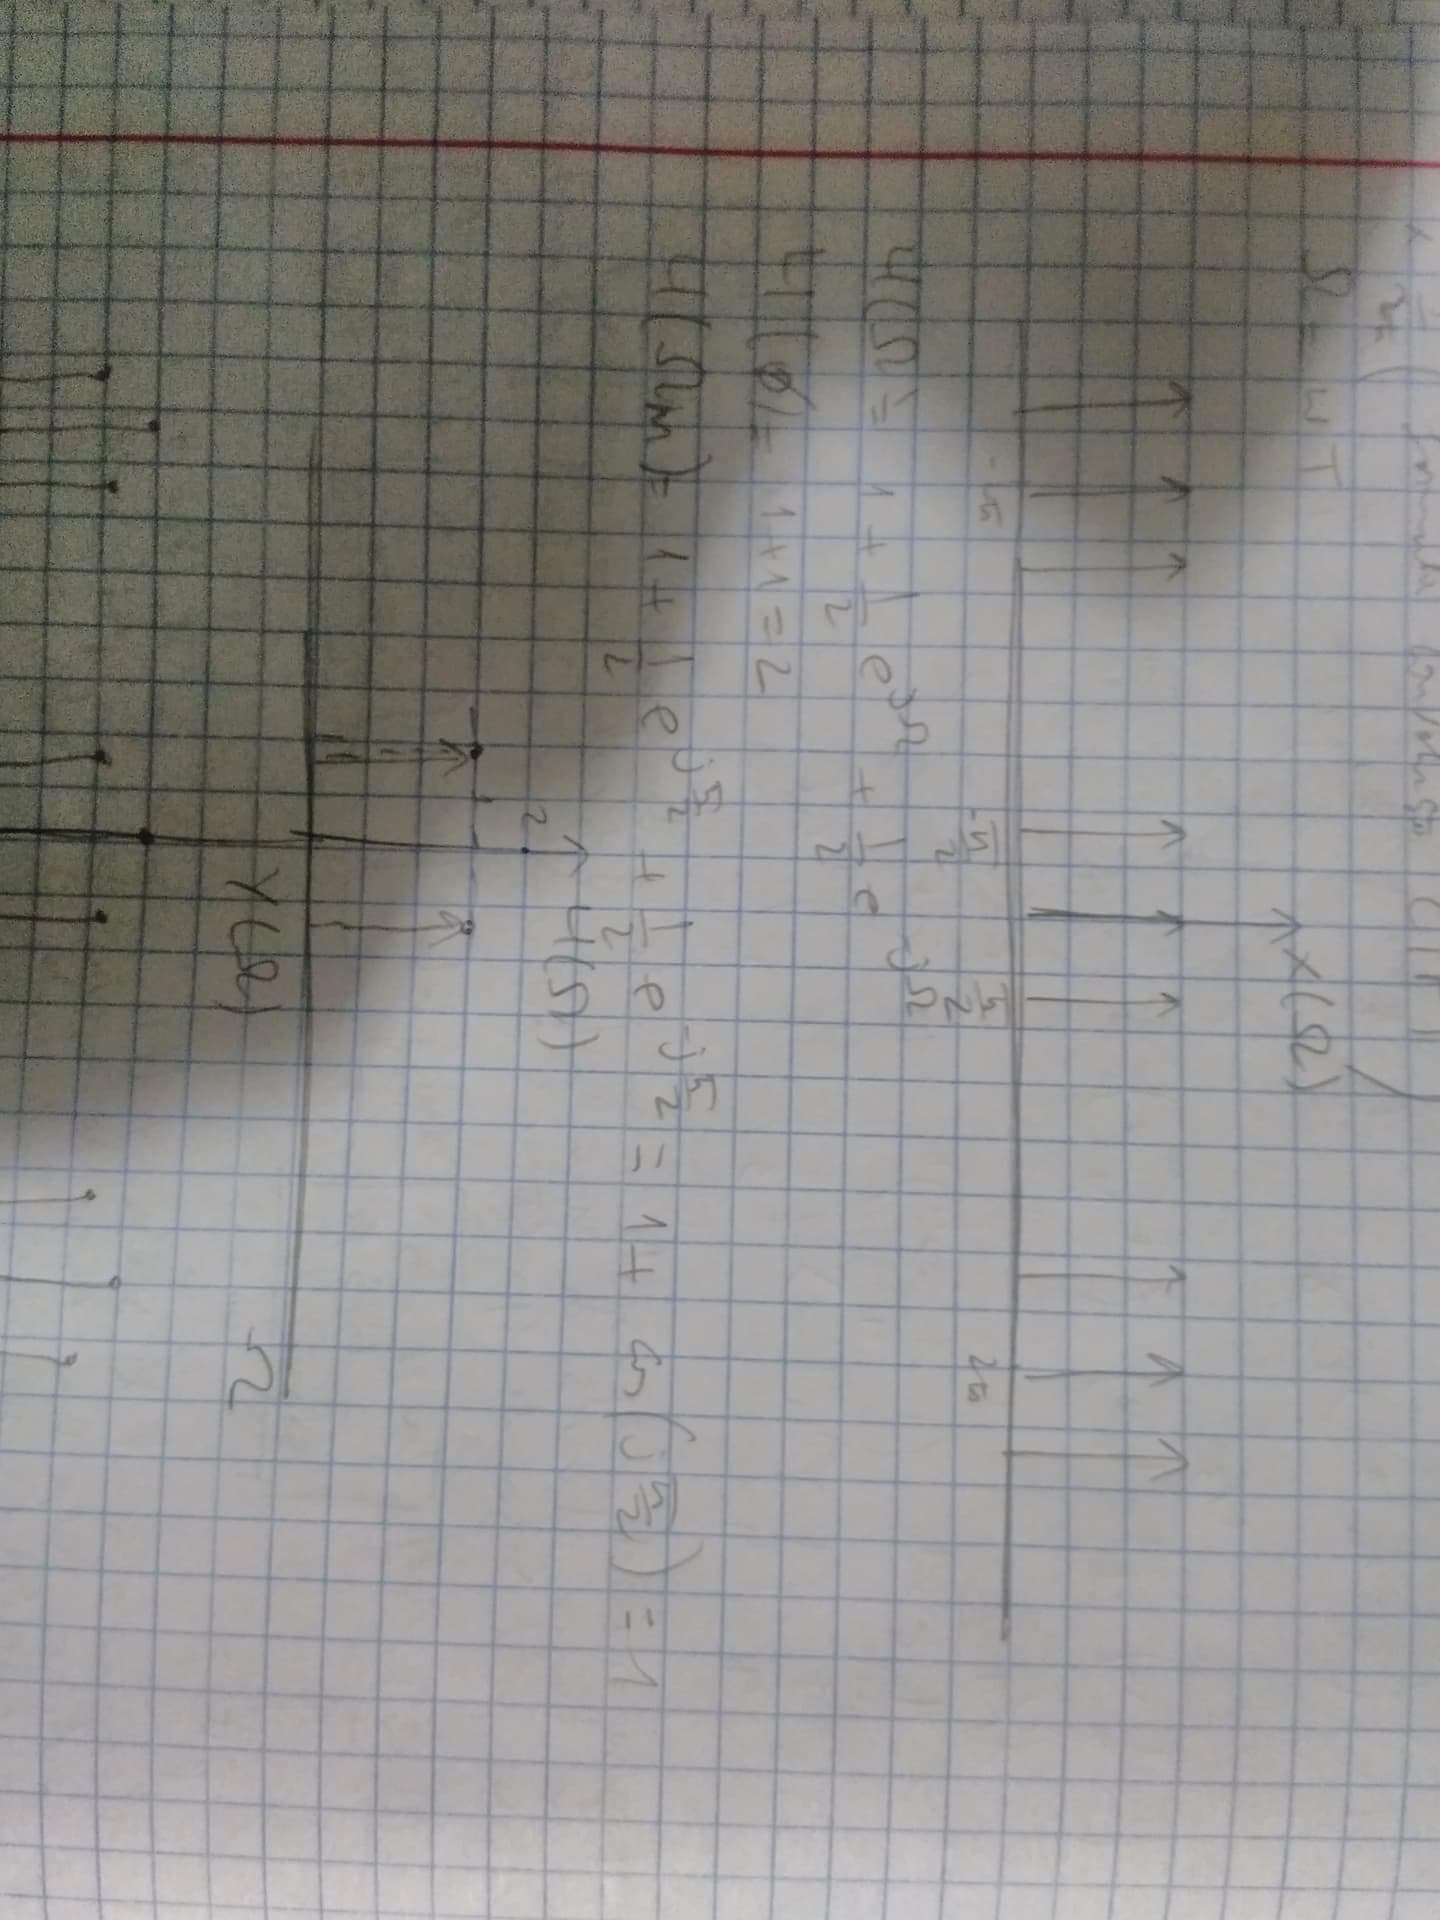 Ω = ωT
X(Ω)
-2π -π/2 π/2 2π
H(Ω) = 1 + 1/2 e^jΩ + 1/2 e^-jΩ
H(0) = 1+1 = 2
H(Ωm) = 1 + 1/2 e^j π/2 + 1/2 e^-j π/2 = 1 + cos(j π/2) = 1
H(Ω)
2
1
Y(Ω)
Ω